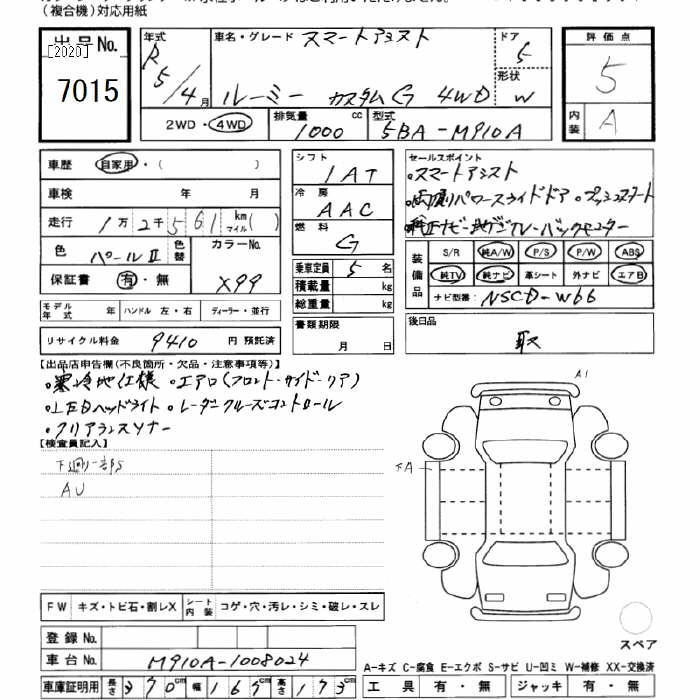 (複合機)対応用紙
出品No. [2020]
7015
年式 R5/4月
車名・グレード スマートアシスト
ルーミー カスタムG 4WD
ドア 5
形状 W
評価点 5
内装 A
2WD・4WD 排気量 1000 cc 型式 5BA-M910A
車歴 自家用・( )
車検 年 月
走行 1万2千561 km マイル( )
色 パールII 色替 カラーNo. X99
保証書 有・無
モデル年式 ハンドル 左・右 ディーラー・並行
リサイクル料金 9410 円 預託済
シフト IAT
冷房 AAC
燃料 G
乗車定員 5 名
積載量 kg
総重量 kg
書類期限 月 日
セールスポイント
・スマートアシスト
・両側パワースライドドア・プッシュスタート
・純正ナビ・地デジTV・バックモニター
装備品 S/R 純A/W P/S P/W ABS
純TV 純ナビ 革シート 外ナビ エアB
ナビ型番 NSCD-W66
後日品
取
【出品店申告欄(不良箇所・欠品・注意事項等)】
・寒冷地仕様 ・エアロ(フロント・サイド・リア)
・LEDヘッドライト ・レーダークルーズコントロール
・クリアランスソナー
【検査員記入】
下廻り一部S
AU
A1
FW キズ・トビ石・割レX シート内装 コゲ・穴・汚レ・シミ・破レ・スレ
登録No.
車台No. M910A-1008024
車庫証明用 長さ 370cm 幅 167cm 高さ 173cm
スペア
A-キズ C-腐食 E-エクボ S-サビ U-凹ミ W-補修 XX-交換済
工具 有・無 ジャッキ 有・無